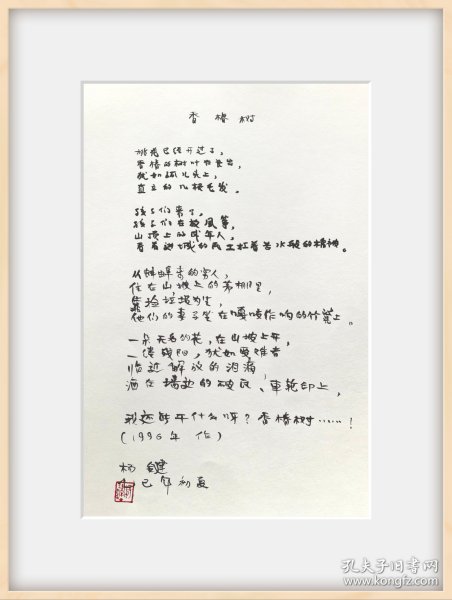 香椿树
桃花已经开过了，
香椿的树叶才长出，
犹如婴儿头上，
直立的几根毛发。
孩子们来了，
孩子们在放风筝，
山坡上的成年人，
看着进城的民工扛着苦水般的棉被。
从蚌埠来的穷人，
住在山坡上的茅棚里，
靠捡垃圾为生，
他们的妻子坐在嘎吱作响的竹凳上。
一朵无名的花，在山坡上开，
一缕残阳，犹如受难者
临近解放的泪滴，
洒在塘边的破瓦、車轮印上，
我还能干什么呀？香椿树……！
(1996年 作)
杨键
已年初夏
孔夫子旧书网
www.kongfz.com